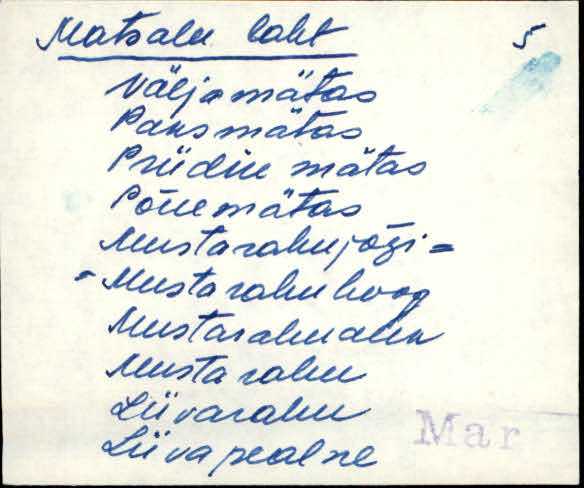 Matsalu laht 5
Väljamätas
Paksmätas
Priidiku mätas
Põuemätas
Mustarahujõgi =
= Mustarahu hoog
Mustarahualun
Mustarahu
Liivarahu
Liivapealne
Mar